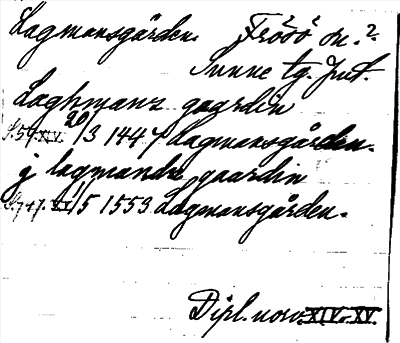 Lagmansgården. Frösö sn.?
Sunne tg. Jmt.
Laghmanz gaardin
S. 59. XIV. 20/3 1447 Lagmansgården.
j lagmandz gaardin
1/5 1553 Lagmansgården.
Dipl. norv. XIV. XV.